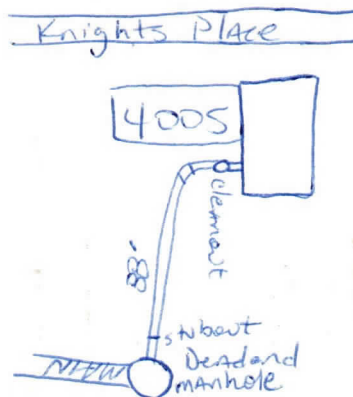 Knights Place
4005
cleanout
88'
stubout
Deadend
manhole
MAIN